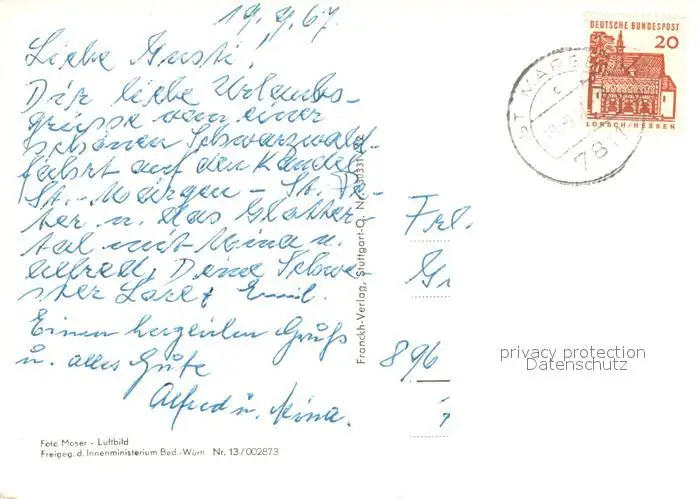 19.9.67.
Liebe Gusti!
Dir liebe Urlaubs-
grüsse von einer
schönen Schwarzwald-
fahrt auf den Kandel
St. Märgen - St. Pe-
ter u. das Glotter-
tal mit Mina u.
Alfred, Deine Schwe-
ster Lore & Emil.
Einen herzlichen Gruß
u. alles Gute
Alfred u. Mina.
Foto Moser - Luftbild
Freigeg. d. Innenministerium Bad.-Württ Nr. 13/002873
Franckh-Verlag, Stuttgart-O.
DEUTSCHE BUNDESPOST
20
LORSCH/HESSEN
ST. MÄRGEN
78
Frl.
896
privacy protection
Datenschutz